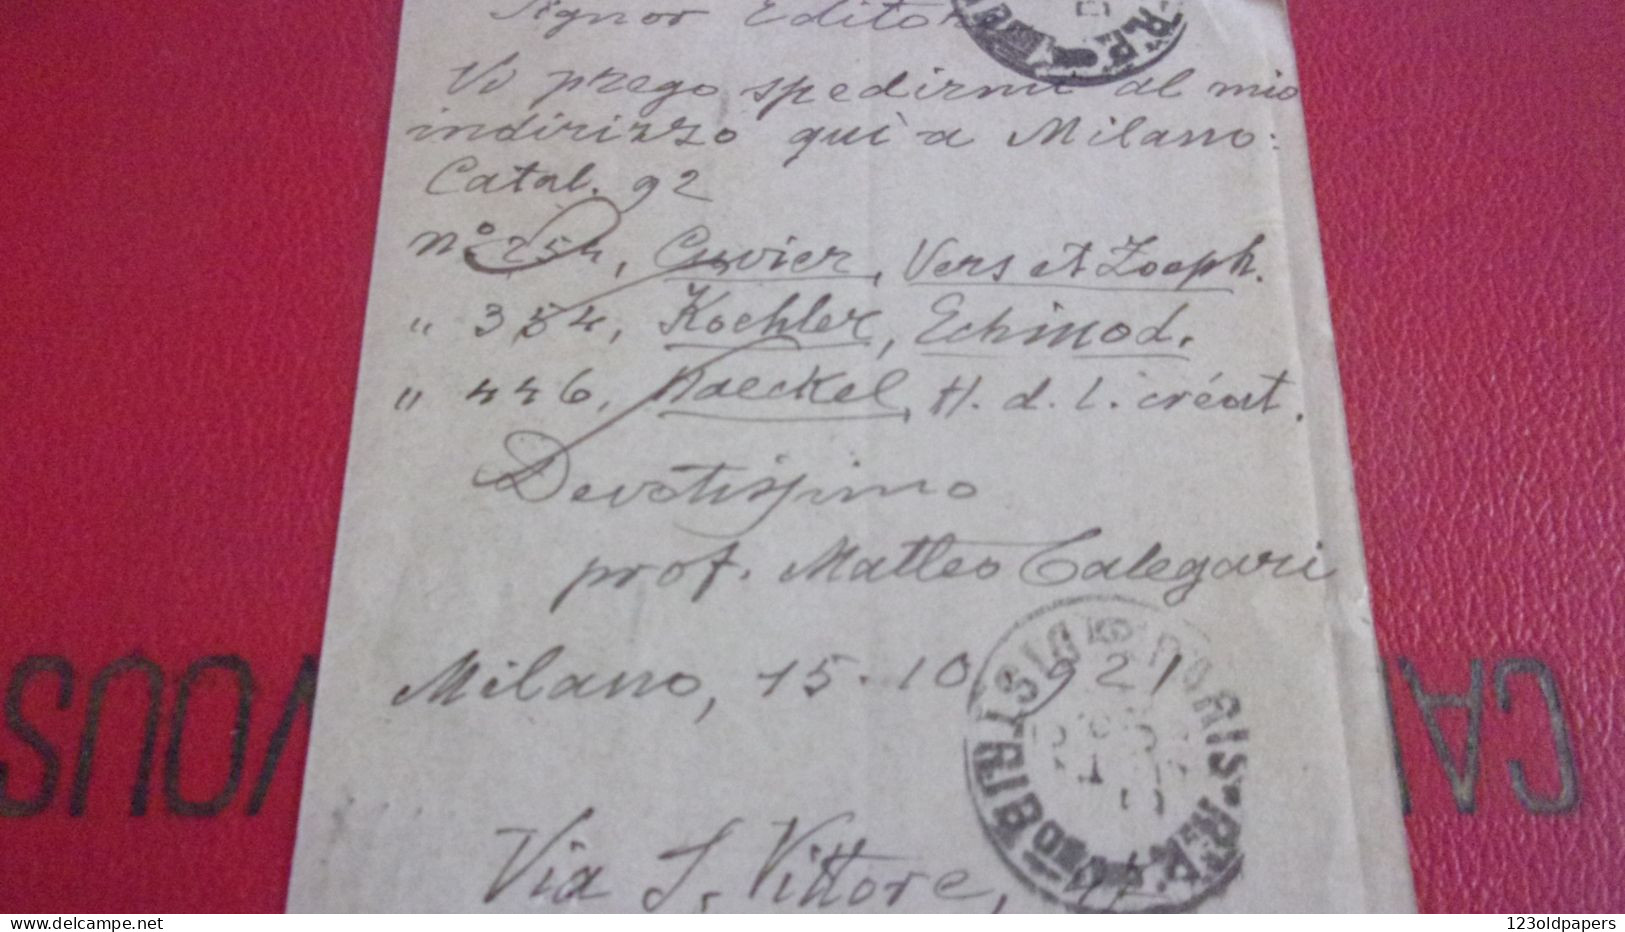 Signor Editore
Vi prego spedirmi al mio
indirizzo quì a Milano:
Catal. 92
N.º 254, Cuvier, Vers et Zooph.
" 354, Kochler, Echinod.
" 446, Haeckel, H. d. l. créat.
Devotissimo
prof. Matteo Calegari
Milano, 15.10.921
Via S. Vittore,
PARIS
R.P.
DISTRIBON
VOUS
CA
123oldpapers